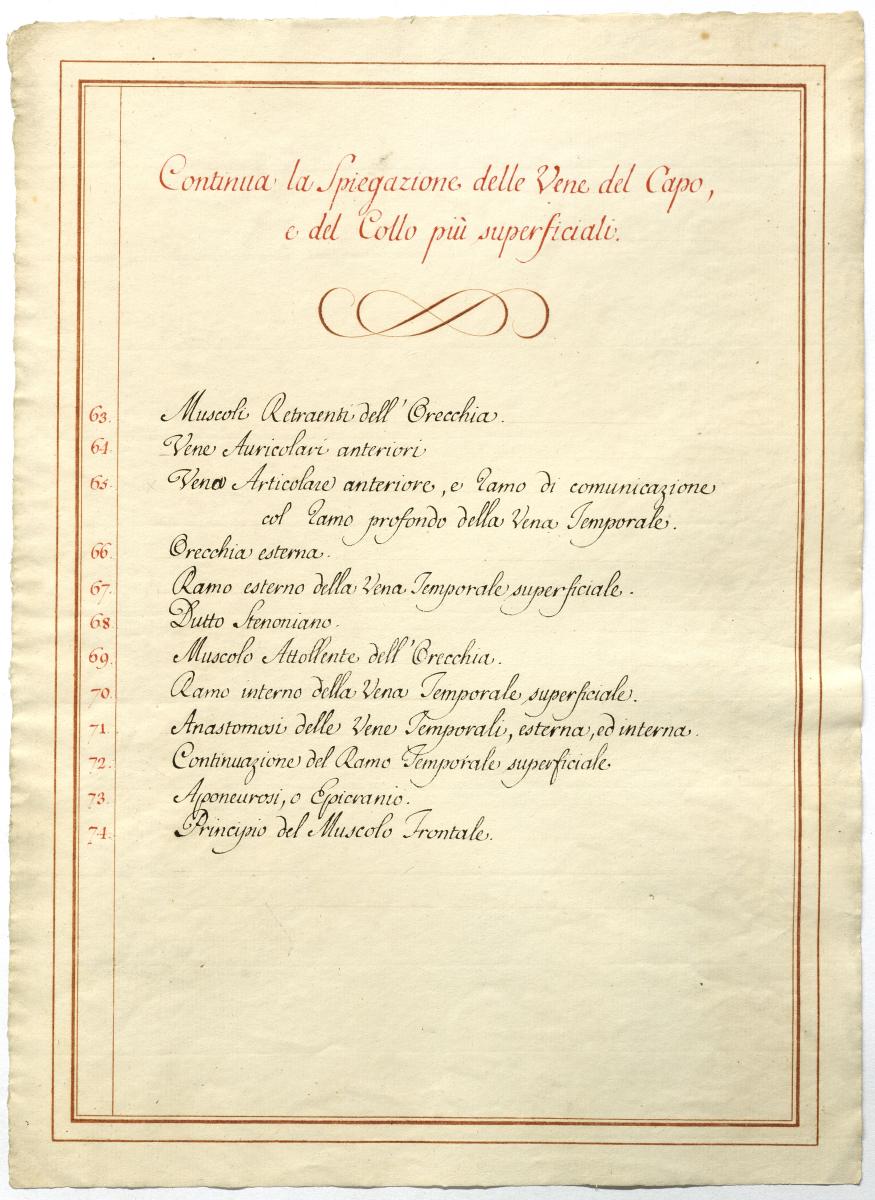 Continua la Spiegazione delle Vene del Capo,
e del Collo più superficiali.
63. Muscoli Retraenti dell'Orecchia.
64. Vene Auricolari anteriori
65. Vena Articolare anteriore, e Ramo di comunicazione
col Ramo profondo della Vena Temporale.
66. Orecchia esterna.
67. Ramo esterno della Vena Temporale superficiale.
68. Dutto Stenoniano.
69. Muscolo Attollente dell'Orecchia.
70. Ramo interno della Vena Temporale superficiale.
71. Anastomosi delle Vene Temporali, esterna, ed interna.
72. Continuazione del Ramo Temporale superficiale
73. Aponeurosi, o Epicranio.
74. Principio del Muscolo Frontale.